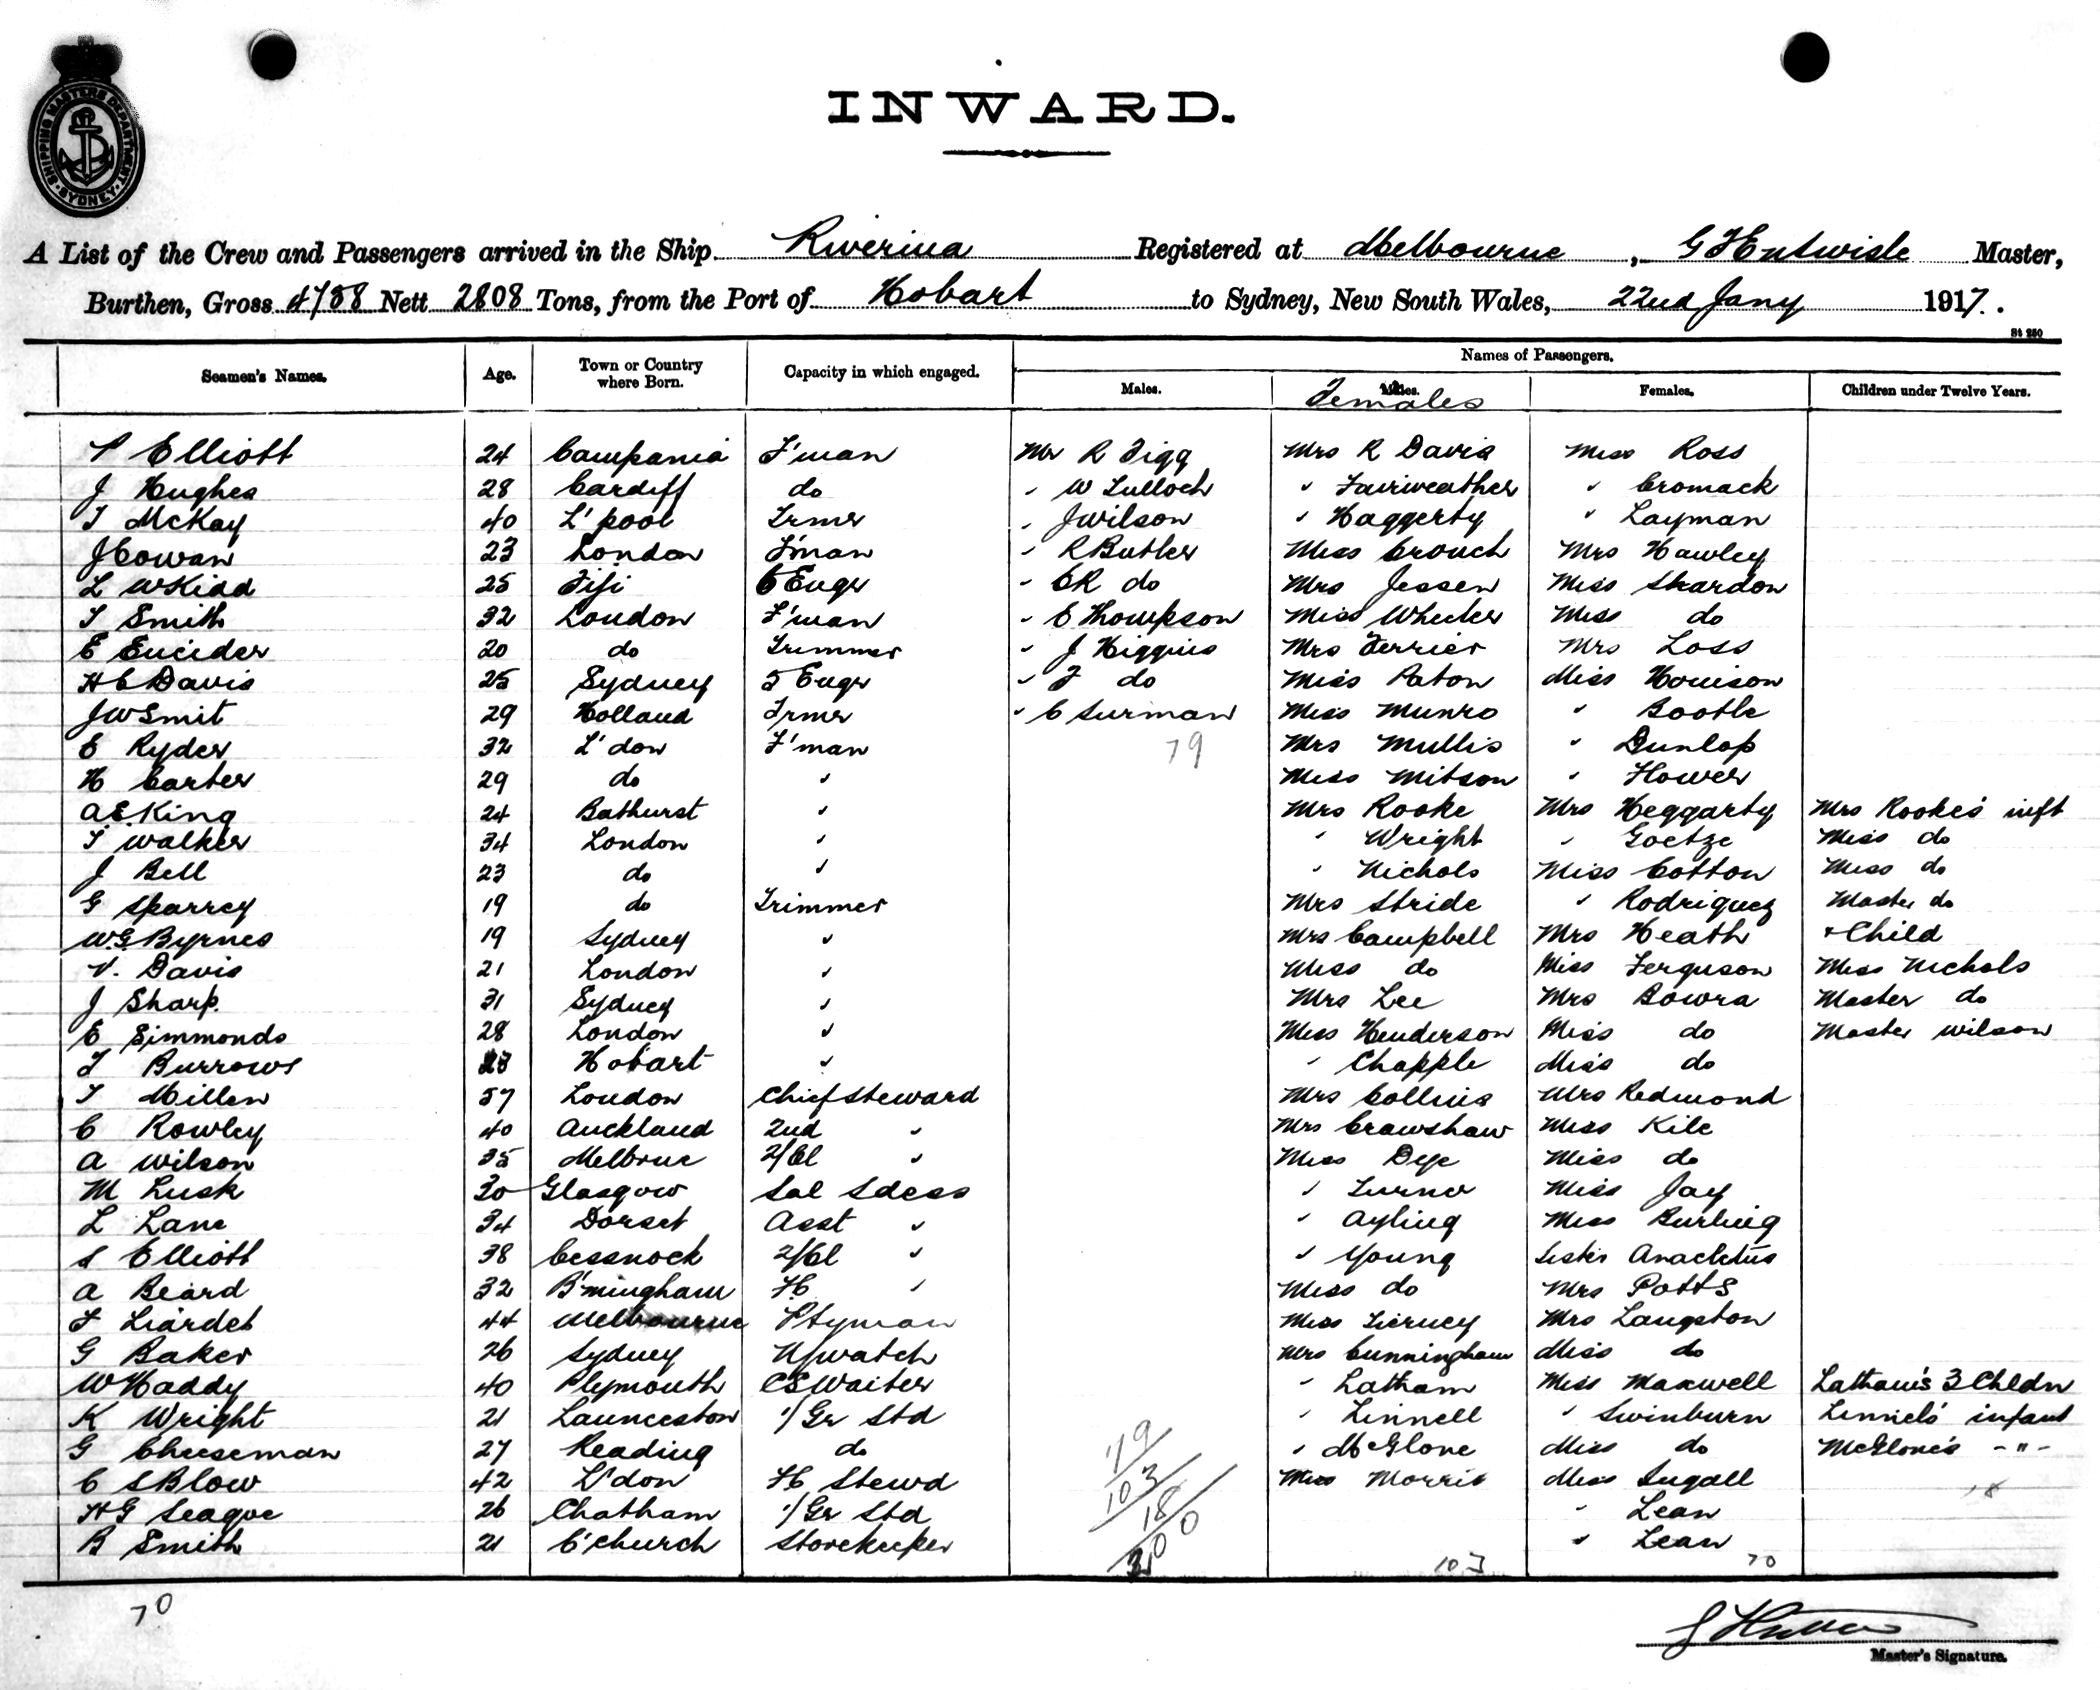 SHIPPING MASTERS DEPARTMENT · SYDNEY ·
INWARD.
A List of the Crew and Passengers arrived in the Ship Riverina Registered at Melbourne, G H Entwisle Master,
Burthen, Gross 4758 Nett 2808 Tons, from the Port of Hobart to Sydney, New South Wales, 22nd Jany 1917.
St 250
Seamen's Names. Age. Town or Country where Born. Capacity in which engaged. Names of Passengers.
Males. Males. Females Females. Children under Twelve Years.
P Elliott 24 Campania F'man Mr R Figg Mrs R Davis Miss Ross
J Hughes 28 Cardiff do " W Tulloch " Fairweather " Cromack
T McKay 40 L'pool Trmr " J Wilson " Haggerty " Layman
J Cowan 23 London F'man " R Butler Miss Crouch Mrs Hawley
L W Kidd 25 Fiji 6 Engr " C R do Mrs Jessen Miss Shardon
T Smith 32 London F'man " C Thompson Miss Wheeler Miss do
E 20 do Trimmer " J Higgins Mrs Ferrier Mrs Loss
H C Davis 25 Sydney 5 Engr " F do Miss Paton Miss Houison
J W Smit 29 Holland Trmr " C Surman Miss Munro " Bootle
E Ryder 32 L'don F'man 79 Mrs Mullis " Dunlop
H Carter 29 do " Miss Mitson " Flower
A.E. King 24 Bathurst " Mrs Rooke Mrs Heggarty Mrs Rooke's inft
T Walker 34 London " " Wright " Goetze Miss do
J Bell 23 do " " Nichols Miss Cotton Miss do
G Sparrey 19 do Trimmer Mrs Stride " Rodriguez Master do
W.G. Byrnes 19 Sydney " Mrs Campbell Mrs Heath + Child
V. Davis 21 London " Miss do Miss Ferguson Miss Nichols
J Sharp. 31 Sydney " Mrs Lee Mrs Bowra Master do
E Simmonds 28 London " Miss Henderson Miss do Master Wilson
T Burrows Hobart " " Chapple Miss do
T Millen 57 London Chief Steward Mrs Collins Mrs Redmond
C Rowley 40 Auckland 2nd " Mrs Crawshaw Miss Kile
A Wilson 35 Melbrne 2/Cl " Miss Dye Miss do
M Lusk 30 Glasgow Sal Sdess " Turner Miss Jay
L Lane 34 Dorset Asst " " Ayling Miss Burling
S Elliott 38 Cessnock 2/Cl " " Young Sister Anacletus
A Beard 32 B'mingham FC " Miss do Mrs Potts
F Liardet 44 Melbourne Ptyman Miss Tierney Mrs Langston
G Baker 26 Sydney N/watch Mrs Cunningham Miss do
W Haddy 40 Plymouth CS Waiter " Latham Miss Maxwell Latham's 3 Chldn
K Wright 21 Launceston 1/Gr Std " Linnell " Swinburn Linnels' infant
G Cheeseman 27 Reading do " McGlone Miss do McGlone's - " -
C S Blow 42 L'don FC Stewd Miss Morris Miss Sugall 18
H G Seague 26 Chatham 1/Gr Std " Lean
B Smith 21 C'church Storekeeper " Lean
79
103
18
200
103 70
70
Master's Signature.